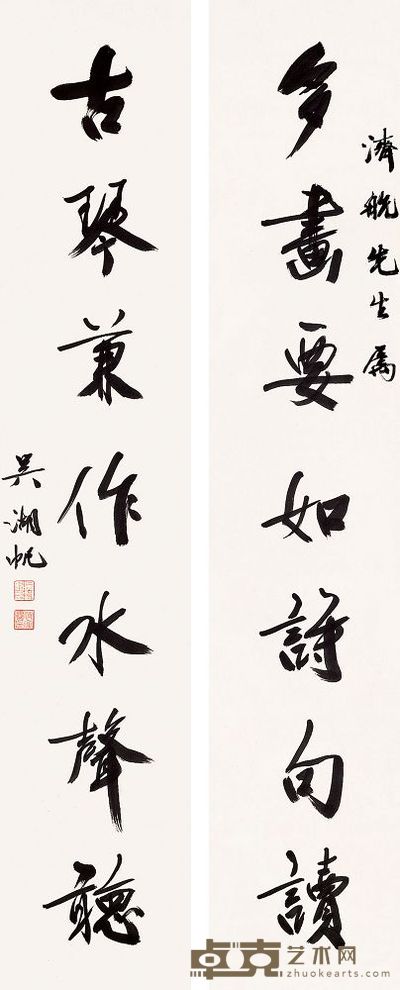 濟航先生属
多畫要如詩句讀
古琴兼作水聲聽
吳湖帆
卓克艺术网
zhuokearts.com